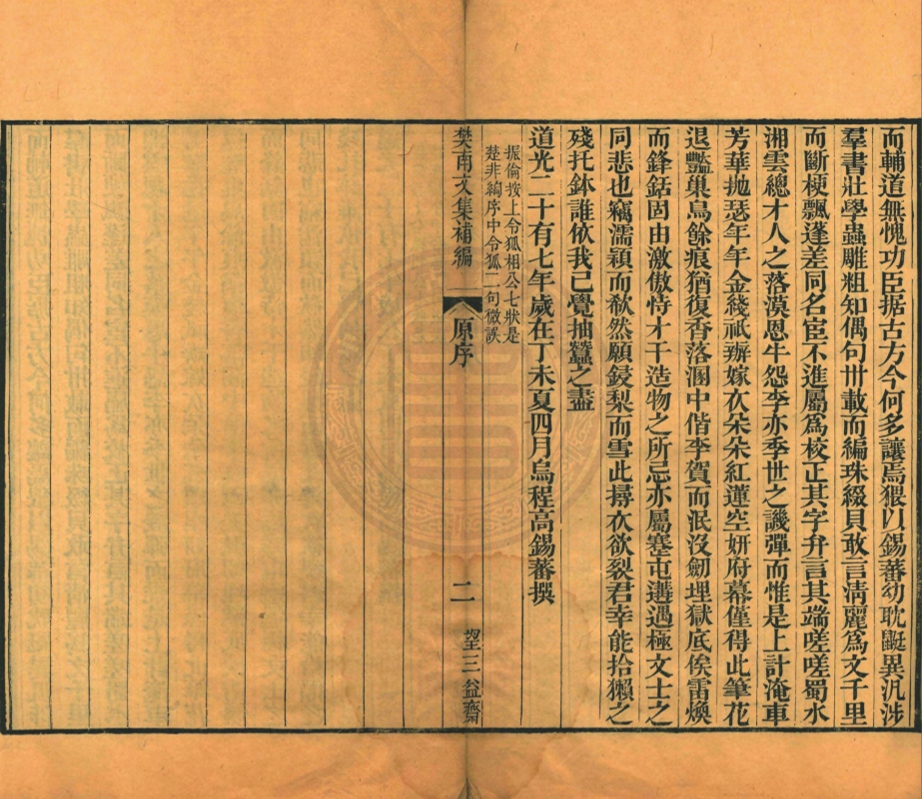 而輔道無愧功臣据古方今何多讓焉猥以錫蕃幼耽鼮異汎涉
羣書壯學蟲雕粗知偶句卅載而編珠綴貝敢言清麗爲文千里
而斷梗飄蓬差同名宦不進屬爲校正其字弁言其端嗟嗟蜀水
湘雲總才人之落漠恩牛怨李亦季世之譏彈而惟是上計淹車
芳華拋瑟年年金綫祇辦嫁衣朵朵紅蓮空妍府幕僅得此筆花
退豔巢鳥餘痕猶復香落溷中偕李賀而泯沒劒埋獄底俟雷煥
而鋒銛固由激傲恃才干造物之所忌亦屬蹇屯遘遇極文士之
同悲也竊濡穎而欷然願鋟梨而雪此撏衣欲裂君幸能拾獺之
殘托鉢誰依我已覺抽蠶之盡
道光二十有七年歲在丁未夏四月烏程高錫蕃撰
振倫按上令狐相公七狀是
楚非綯序中令狐一句微誤
樊南文集補編
原序
二
望三益齋